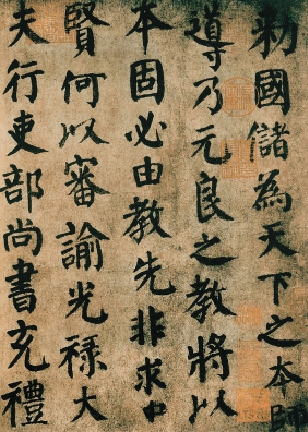 勅國儲為天下之本師
導乃元良之教將以
本固必由教先非求中
賢何以審諭光禄大
夫行吏部尚書充禮